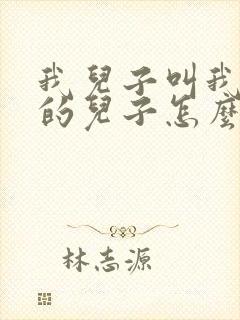 我兒子叫我
的兒子怎麼
林志源